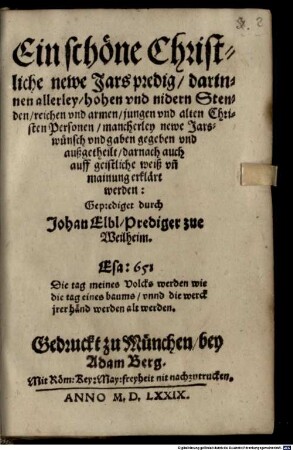 Ein schöne Christ-
liche newe Jars predig / darin-
nen allerley / hohen vnd nidern Sten-
den / reichen vnd armen / jungen vnd alten Chri-
sten Personen / mancherley newe Jars-
wünsch vnd gaben gegeben vnd
außgetheilt / darnach auch
auff geistliche weiß vñ
mainung erklärt
werden:
Geprediget durch
Johan Elbl / Prediger zue
Weilheim.
Esa: 65.
Die tag meines Volcks werden wie
die tag eines baums / vnnd die werck
jrer händ werden alt werden.
Gedruckt zu München / bey
Adam Berg.
Mit Röm: Key: May: freyheit nit nachzutrucken.
ANNO M. D. LXXIX.